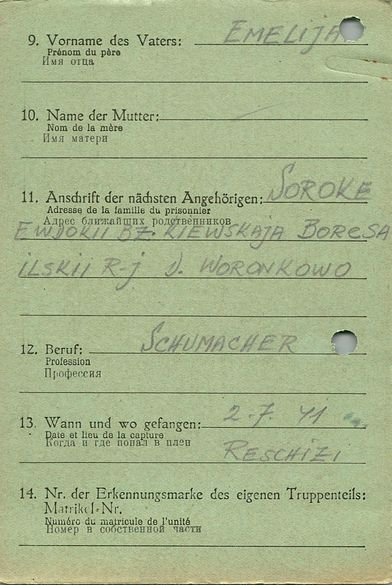 9. Vorname des Vaters: EMELIJA
Prénom du père
Имя отца
10. Name der Mutter:
Nom de la mère
Имя матери
11. Anschrift der nächsten Angehörigen: SOROKE
Adresse de la famille du prisonnier
Адрес ближайших родственников
EWDOKII BZ. KIEWSKAJA BORESA
ILSKII R-j D. WORONKOWO
12. Beruf: SCHUMACHER
Profession
Профессия
13. Wann und wo gefangen: 2-7. 41
Date et lieu de la capture
Когда и где попал в плен
RESCHIZI
14. Nr. der Erkennungsmarke des eigenen Truppenteils:
Matrikel-Nr.
Numéro du matricule de l'unité
Номер в собственной части